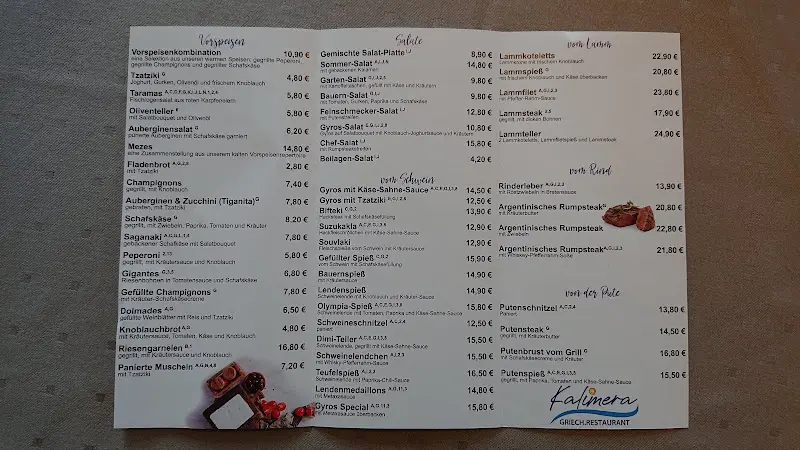 Vorspeisen
Vorspeisenkombination 10,90 €
eine Selektion aus unseren warmen Speisen: gegrillte Peperoni,
gegrillte Champignons und gegrillter Schafskäse
Tzatziki G 4,80 €
Joghurt, Gurken, Olivenöl und frischem Knoblauch
Taramas 5,80 €
Fischrogensalat aus roten Karpfeneiern
Oliventeller 5,80 €
mit Salatbouquet und Olivenöl
Auberginensalat G 6,20 €
pürierte Auberginen mit Schafskäse garniert
Mezes 14,80 €
eine Zusammenstellung aus unserem kalten Vorspeisenrepertoire
Fladenbrot 2,80 €
mit Tzatziki
Champignons 7,40 €
gegrillt, mit Knoblauch
Auberginen & Zucchini (Tiganita) G 7,80 €
gebraten, mit Tzatziki
Schafskäse G 8,20 €
gegrillt, mit Zwiebeln, Paprika, Tomaten und Kräuter
Saganaki 7,80 €
gebackener Schafskäse mit Salatbouquet
Peperoni 5,80 €
gegrillt, mit Kräutersauce und Knoblauch
Gigantes 6,80 €
Riesenbohnen in Tomatensauce und Schafskäse
Gefüllte Champignons G 7,80 €
mit Kräuter-Schafskäsecreme
Dolmades A,G 6,50 €
gefüllte Weinblätter mit Reis und Tzatziki
Knoblauchbrot A,G 4,80 €
mit Kräutersauce, Tomaten, Käse und Knoblauch
Riesengarnelen 16,80 €
gegrillt, mit Kräutersauce und Knoblauch
Panierte Muscheln 7,20 €
mit Tzatziki
Salate
Gemischte Salat-Platte 8,90 €
Sommer-Salat 14,80 €
mit gebackenen Kalamari
Garten-Salat 9.80 €
mit Kartoffelscheiben, gefüllt mit Käse und Kräutern
Bauern-Salat 9.80 €
mit Tomaten, Gurken, Paprika und Schafskäse
Feinschmecker-Salat 12,80 €
mit Putenstreifen
Gyros-Salat 10,80 €
Gyros auf Salatbouquet mit Knoblauch-Joghurtsauce und Kräutern
Chef-Salat 15,80 €
mit Rumpsteakstreifen
Beilagen-Salat 4,20 €
vom Schwein
Gyros mit Käse-Sahne-Sauce 14,50 €
Gyros mit Tzatziki 12,50 €
Bifteki 13,90 €
Hacksteak mit Schafskäsefüllung
Suzukakia 12,90 €
Hackfleischröllchen mit Käse-Sahne-Sauce
Souvlaki 12,90 €
Fleischspieße vom Schwein mit Kräutersauce
Gefüllter Spieß 15,90 €
vom Schwein mit Schafskäsefüllung
Bauernspieß 14,90 €
mit Kräutersauce
Lendenspieß 14,90 €
Schweinelende mit Knoblauch und Kräuter-Sauce
Olympia-Spieß 15,80 €
Schweinelende, mit Tomaten, Paprika und Käse-Sahne-Sauce
Schweineschnitzel 12,50 €
paniert
Dimi-Teller 15,50 €
Schweinelende, gegrillt mit Käse-Sahne-Sauce
Schweinelendchen 15,50 €
mit Whisky-Pfefferrahm-Sauce
Teufelspieß 16,50 €
Schweinelende mit Paprika-Chili-Sauce
Lendenmedaillons 14,80 €
mit Metaxasauce
Gyros Special 15,80 €
mit Metaxasauce überbacken
vom Lamm
Lammkoteletts 22,90 €
Lammkrone mit frischem Knoblauch
Lammspieß G 20,80 €
mit frischem Knoblauch und Käse überbacken
Lammfilet 23,60 €
mit Pfeffer-Rahm-Sauce
Lammsteak 17,90 €
gegrillt, mit dicken Bohnen
Lammteller 24,90 €
2 Lammkoteletts, Lammfiletspieß und Lammhaxe
vom Rind
Rinderleber 13,90 €
mit Röstzwiebeln in Bratensauce
Argentinisches Rumpsteak G 20,80 €
mit Kräuterbutter
Argentinisches Rumpsteak 22,80 €
mit Zwiebeln
Argentinisches Rumpsteak 21,80 €
mit Whiskey-Pfefferrahm-Soße
von der Pute
Putenschnitzel 13,80 €
Paniert
Putensteak G 14,50 €
gegrillt, mit Kräuterbutter
Putenbrust vom Grill G 16,80 €
mit Schafskäsecreme und Kräuter
Putenspieß 15,50 €
gegrillt, mit Paprika, Tomaten und Käse-Sahne-Sauce
Kalimera
GRIECH.RESTAURANT